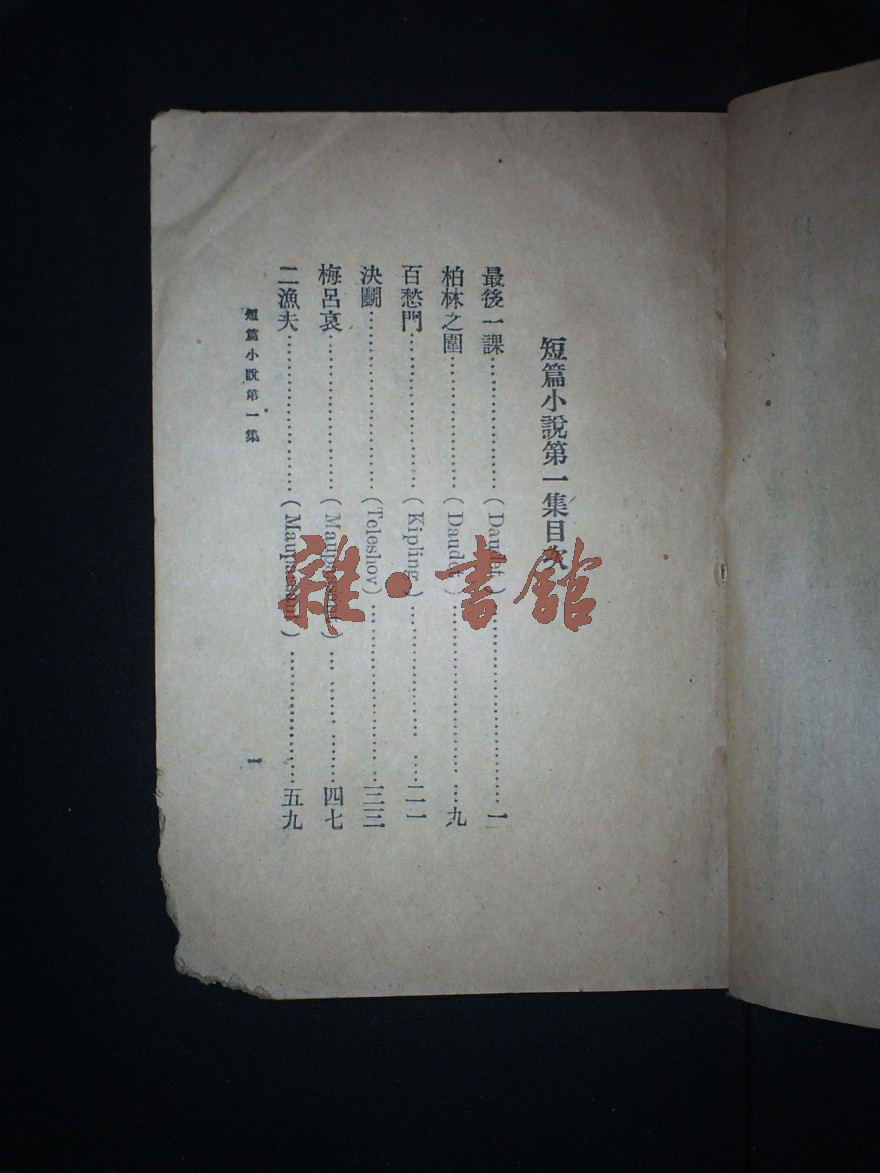 短篇小說第一集目次
最後一課……………………(Daudet)……………………一
柏林之圍……………………(Daudet)……………………九
百愁門……………………(Kipling)……………………二一
決鬭……………………(Teleshov)……………………三三
梅呂哀……………………(Maupassant)……………………四七
二漁夫……………………(Maupassant)……………………五九
短篇小說第一集
一
雜·書館